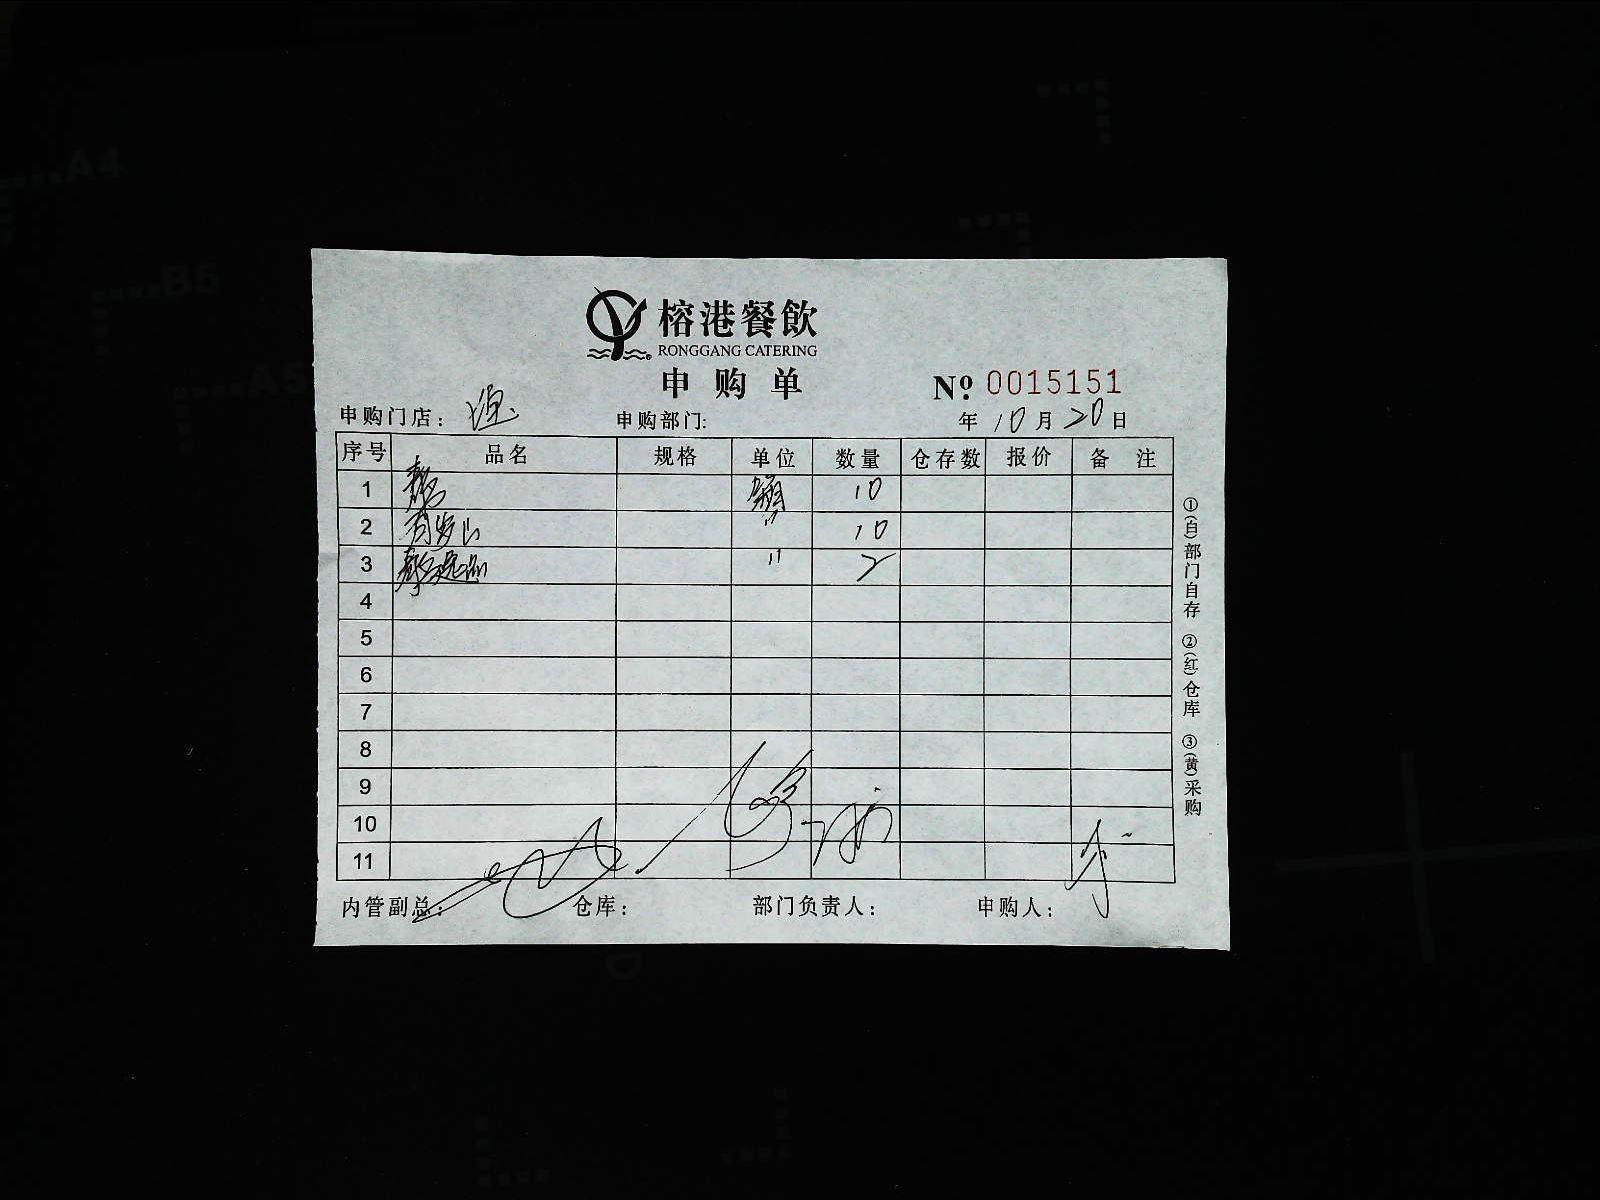 A4
B5
A5
榕港餐飲
RONGGANG CATERING
申购单
№ 0015151
申购门店: 申购部门: 年 10 月 20 日
序号 品名 规格 单位 数量 仓存数 报价 备 注
1 10
2 〃 10
3 〃 2
4
5
6
7
8
9
10
11
内管副总: 仓库: 部门负责人: 申购人:
①(白)部门自存 ②(红)仓库 ③(黄)采购